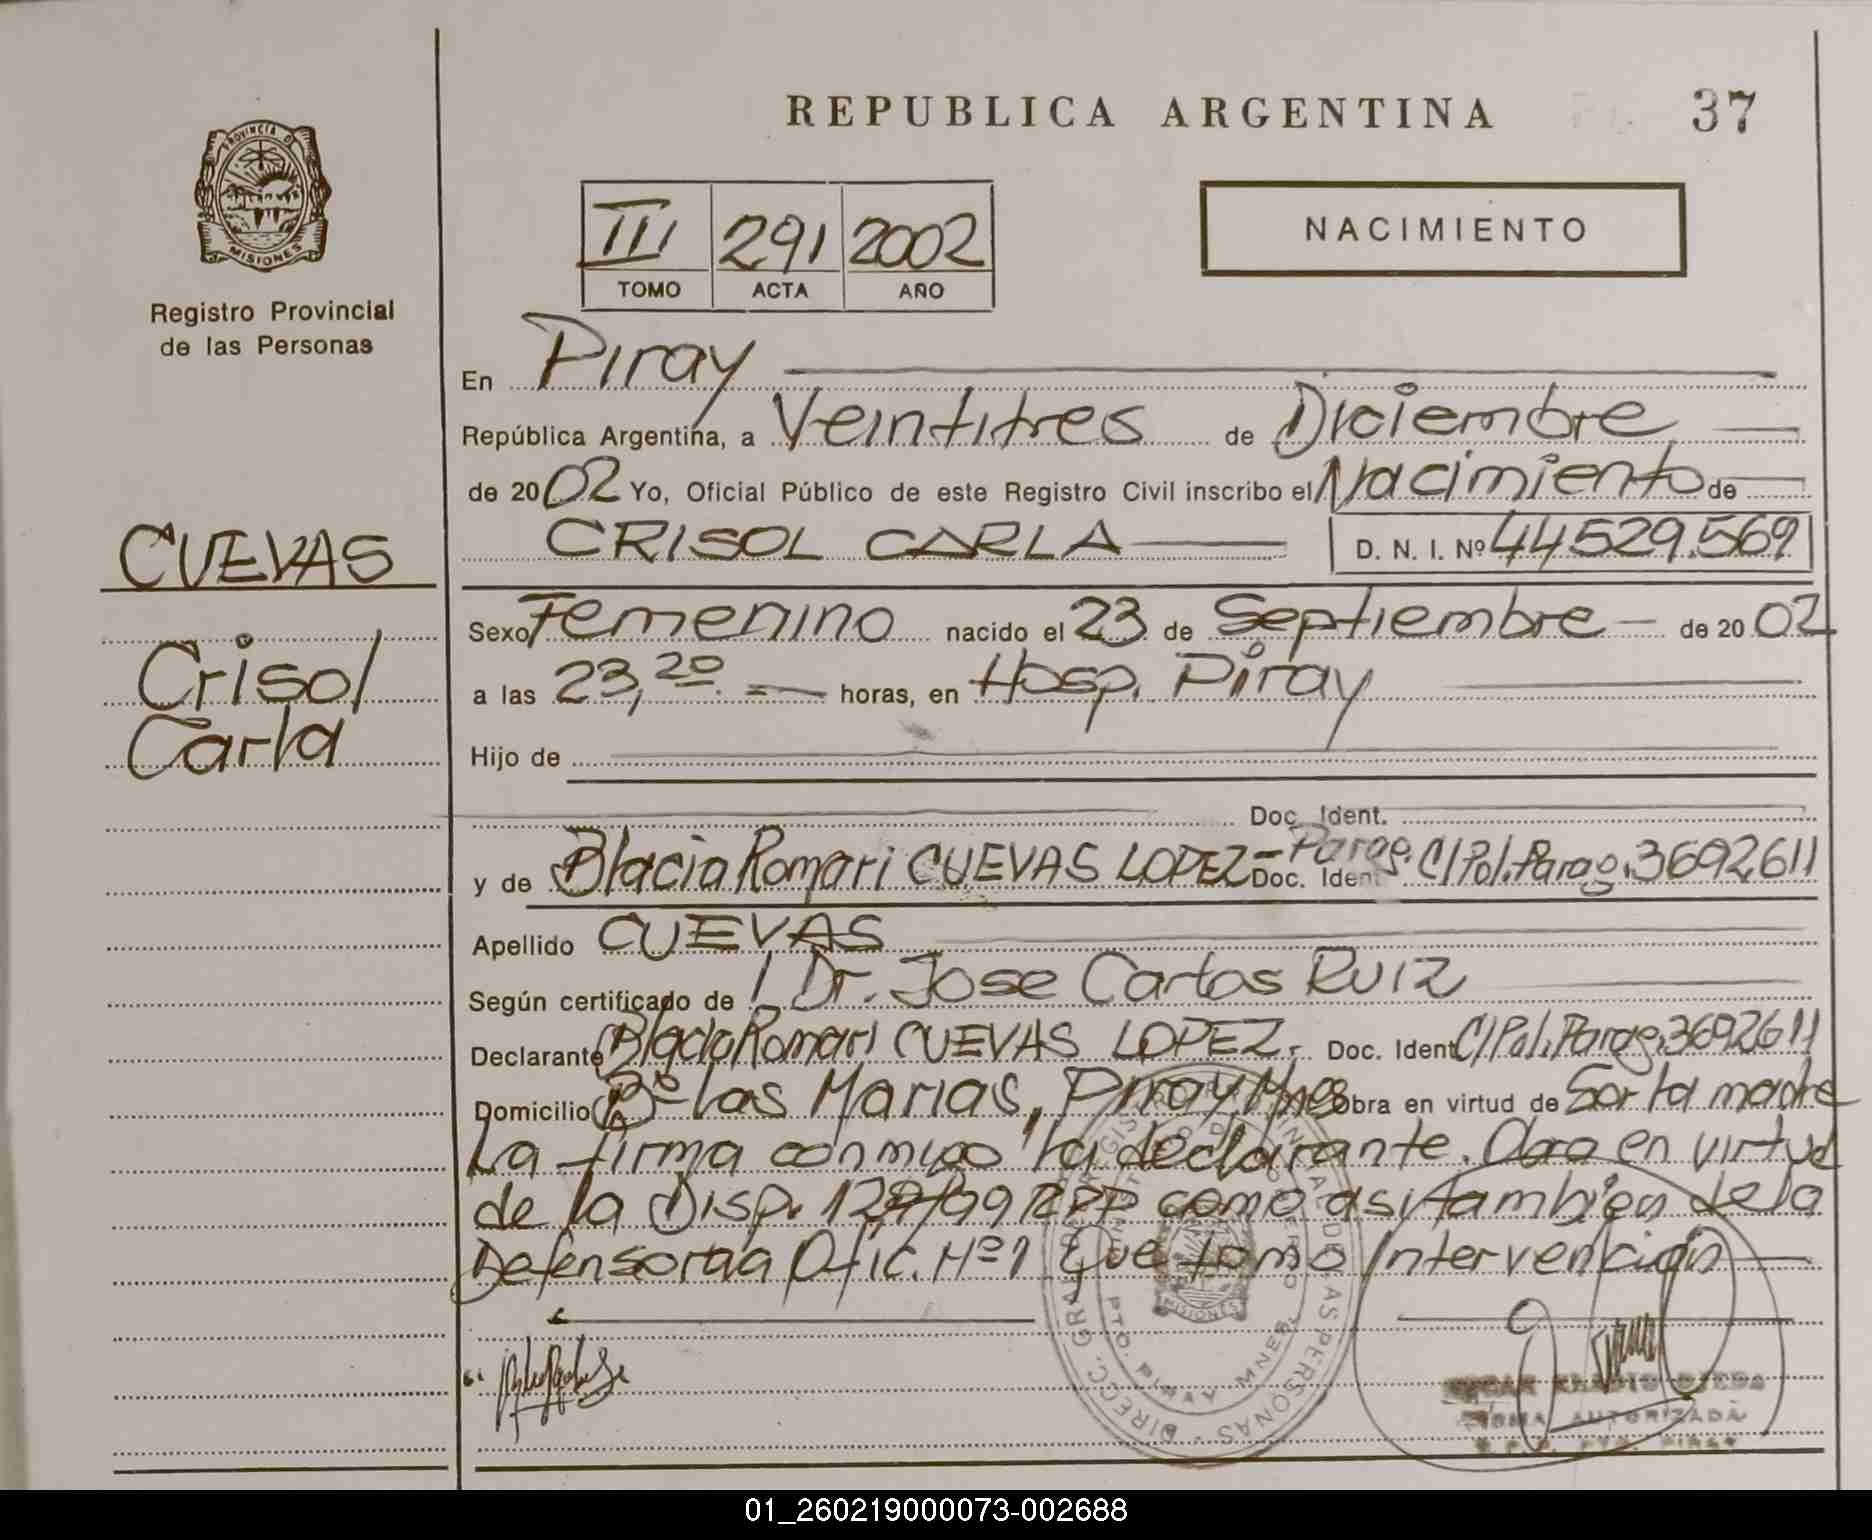 REPUBLICA ARGENTINA
37
PROVINCIA DE
MISIONES
Registro Provincial
de las Personas
III 291 2002
TOMO ACTA AÑO
NACIMIENTO
En Piray
República Argentina, a Veintitres de Diciembre
de 2002 Yo, Oficial Público de este Registro Civil inscribo el Nacimiento de
CRISOL CARLA D. N. I. Nº 44529.569
CUEVAS
Crisol
Carla
Sexo Femenino nacido el 23 de Septiembre de 2002
a las 23,20 horas, en Hosp. Piray
Hijo de
Doc. Ident.
y de Blacia Romari CUEVAS LOPEZ- Parag. Doc. Ident. C/Pol.Parag.3692611
Apellido CUEVAS
Según certificado de Dr. Jose Carlos Ruiz
Declarante Blacia Romari CUEVAS LOPEZ. Doc. Ident C/Pol.Parag.3692611
Domicilio Bº Las Marias, Piray, Mnes Obra en virtud de Ser la madre
La firma conmigo la declarante. Obra en virtud
de la Disp. 129/99 RPP como asi tambien de la
Defensoria Ofic. Nº1 Que tomo intervención
DIRECC. GRAL. DE REGISTRO PROVINCIAL DE LAS PERSONAS
PTO. PIRAY MNES
MISIONES
OJEDA
FIRMA AUTORIZADA
R.P.P. PTO. PIRAY
01_260219000073-002688